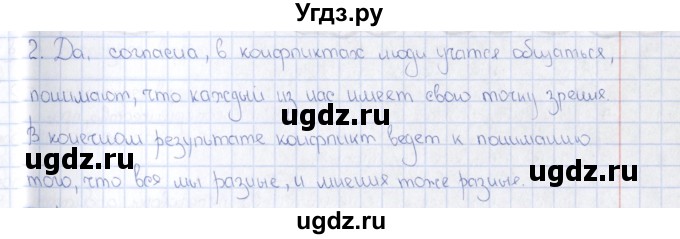 Угдз.ру
2. Да, согласна, в конфликтах люди учатся общаться,
понимают, что каждый из нас имеет свою точку зрения.
В конечном результате конфликт ведет к пониманию
того, что вся мы разные, и мнения тоже разные.
ugdz.ru
ugdz.ru
ugdz.ru
ugdz.ru
ugdz.ru
ugdz.ru
ugdz.ru